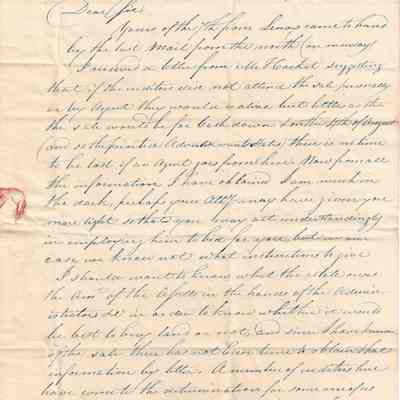 Dear Sir
Yours of the 7th from Lenox came to hand
by the last Mail from the north (on monday
I received a letter from Mr Hackel suggesting
that if the creditors did not attend the sale personally
or by Agent they would realise but little as the
the sale would be for Cash down on the 4th of August
(and so the printed Advertisement states) there is no time
to be lost if an Agent goes from here. Now from all
the information I have obtained I am much in
the dark, perhaps your Atty may have given you
more light so that you may act understandingly
in employing him to bid for you, but in our
case we know not what instructions to give
I should want to know what the debts were
the Amt of the Assets in the hands of the Admin-
istrators &c in order to know whether it would
be best to buy land or not, and since I have known
of the sale there has not been time to obtain that
information by letter. A number of creditors here
have come to the determination for some one of us